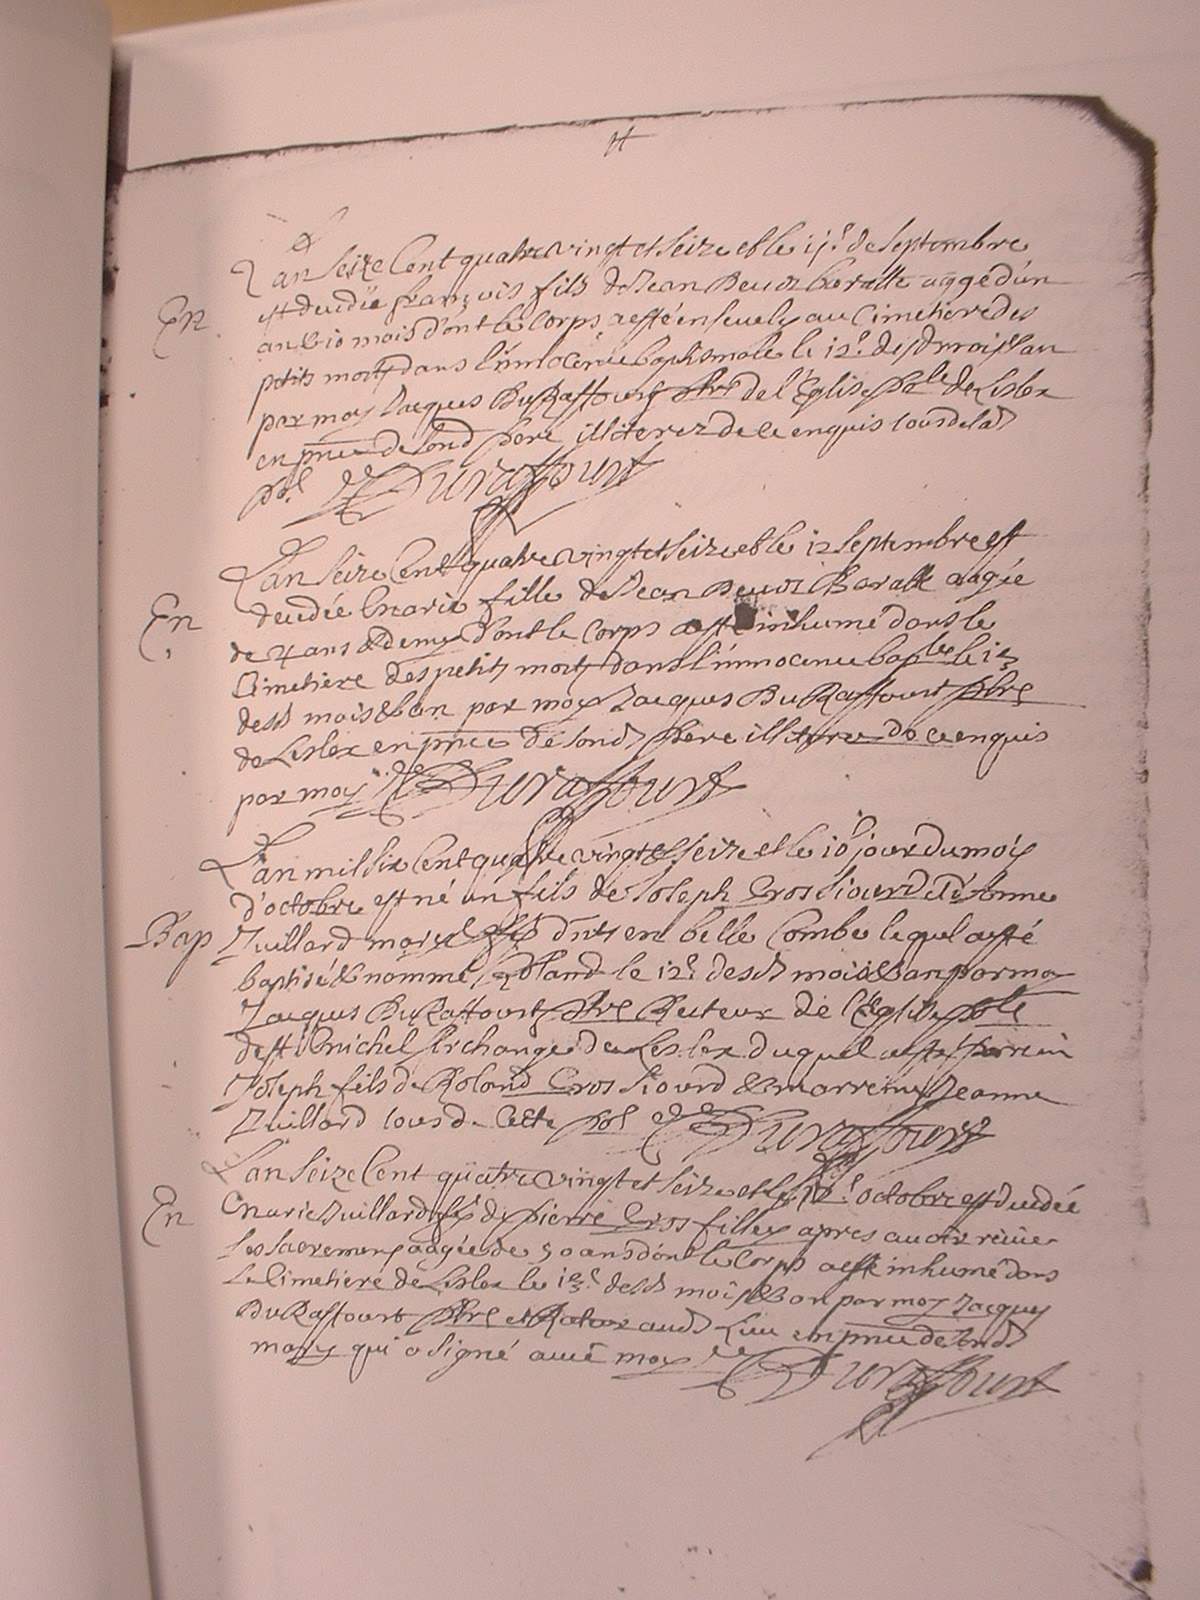 L'an seize Cent quatre vingt et seize et le 11e de septembre
En
est decedée françois fils de Jean Benoi Baralle aggé d'un
an & 10 mois d'ont le Corps a esté ensevely au Cimetiere des
petits morts dans l'innocence baptismale le 12e desd mois & an
par moy Jacques DuRaffourg pbre de l'Eglise de Leslex
en pnce de sond pere illiterez de ce enquis tous de lad
DuRaffourt
L'an seize Cent quatre vingt et seize et le 12 septembre est
En
decedée Marie fille de Jean Benoi Baralle aagée
de 4 ans & demy d'ont le Corps a esté inhumé dans le
Cimetiere des petits morts dans l'innocence le 13
desd mois & an par moy Jacques DuRaffourt pbre
de Leslex en pnce de sond pere illitere de ce enquis
par moy DuRaffourt
L'an mil six Cent quatre vingt & seize et le 10e jour du mois
d'octobre est né un fils de Joseph Gros Siourd et d'
Bap
Vuillard en belle Combe lequel a esté
baptisé & nommé Roland le 12e desd mois & an par moy
Jacques DuRaffourt pbre Recteur de l'Eglise
de st Michel Archange de Leslex duquel a esté parrein
Joseph fils de Roland Gros Siourd & marreine Jeanne
Vuillard tous de Cette DuRaffourt
L'an seize Cent quatre vingt et seize et le 12e octobre est decedée
En
Marie Vuillard de pierre Gros fillex apres avoir
Les sacremens aagée de 50 ans d'ont le Corps a esté inhumé dans
Le Cimetiere de Leslex le 13e desd mois & an par moy Jacques
DuRaffourt pbre et Recteur aud Lieu en pnce de sond
mary qui a signé avec moy DuRaffourt